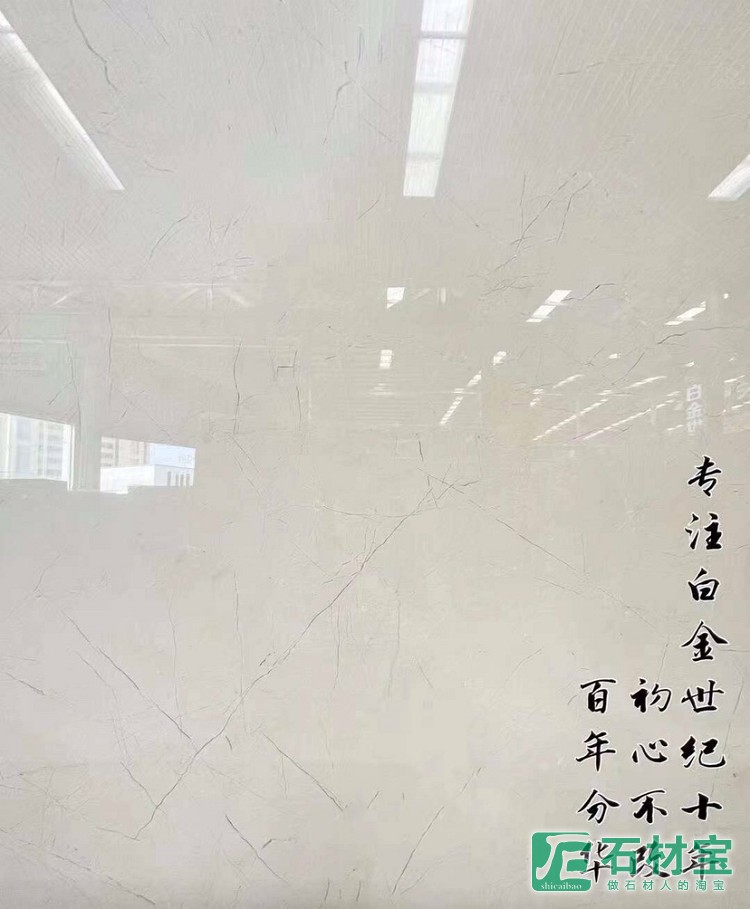 专注白金世纪十年
初心不改
百年分华
白金世
石材宝
做石材人的淘宝
shicaibao